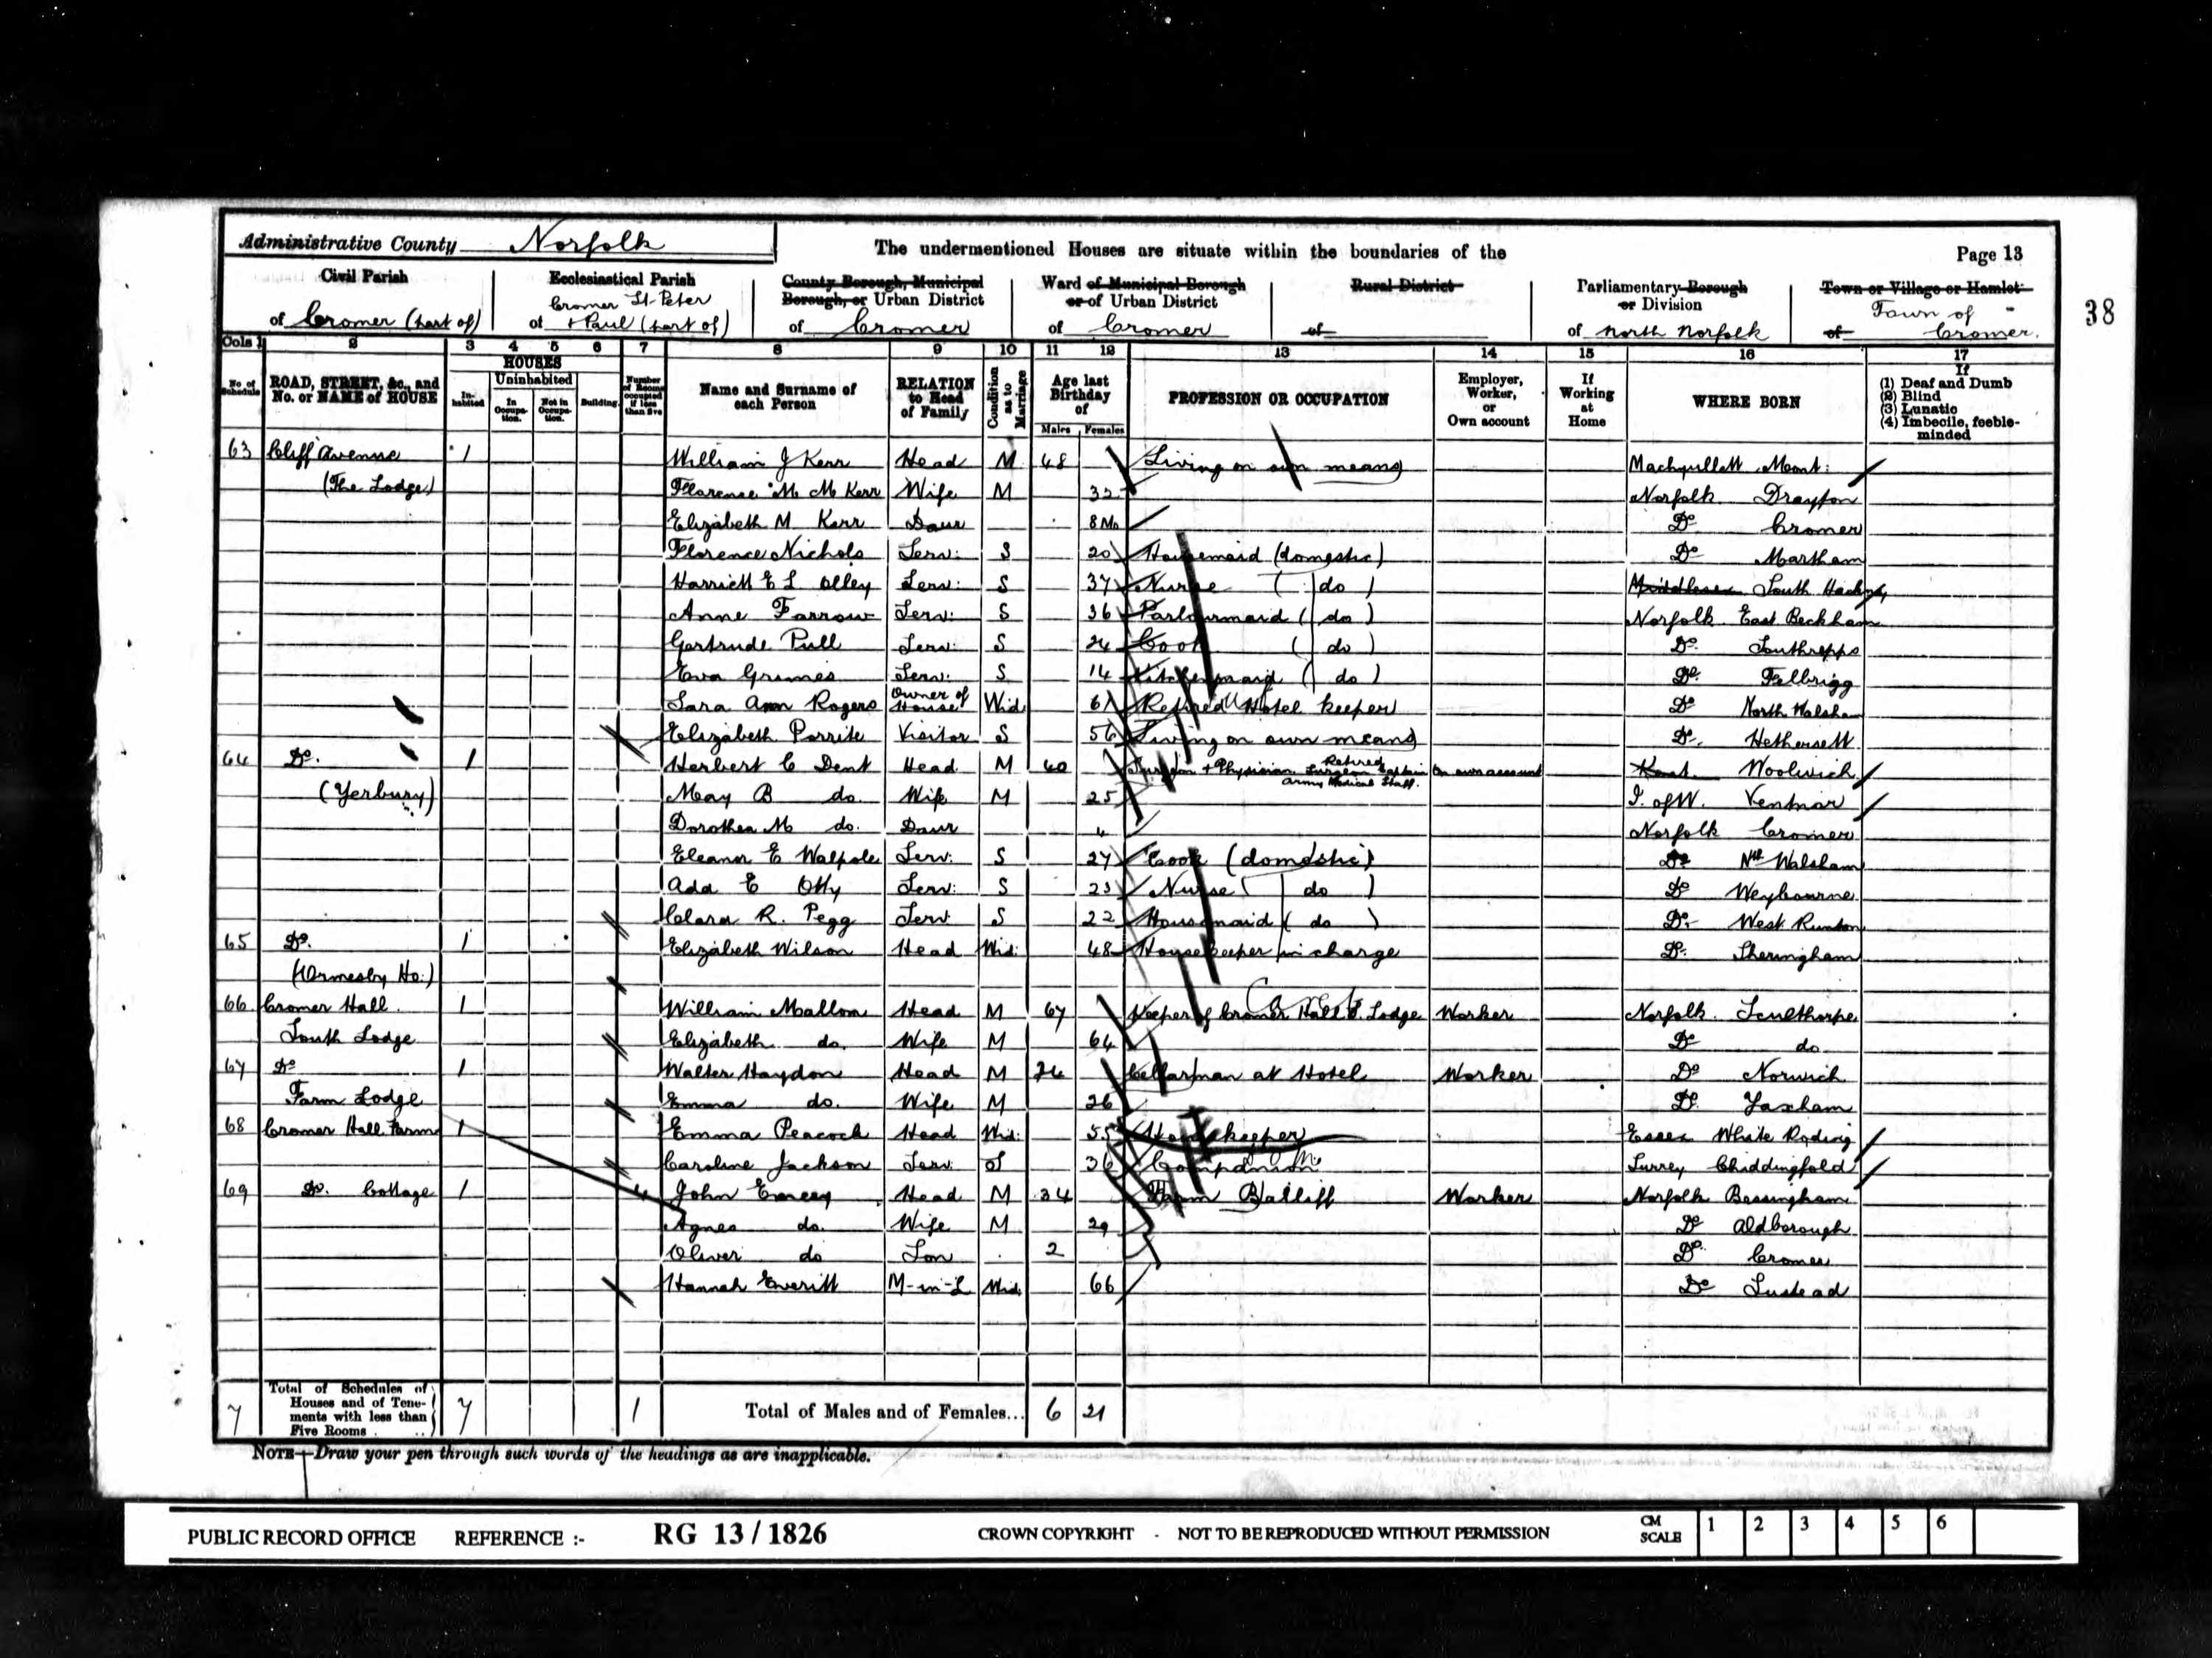 Administrative County Norfolk
The undermentioned Houses are situate within the boundaries of the
Page 13
38
Civil Parish of Cromer (part of)
Ecclesiastical Parish of Cromer St Peter + Paul (part of)
County Borough, Municipal Borough, or Urban District of Cromer
Ward of Municipal Borough or of Urban District of Cromer
Rural District of
Parliamentary Borough or Division of North Norfolk
Town or Village or Hamlet of Town of Cromer.
Cols 1 2 3 4 5 6 7 8 9 10 11 12 13 14 15 16 17
No. of Schedule
ROAD, STREET, &c., and No. or NAME of HOUSE
HOUSES
In-habited
Uninhabited
In Occupa-tion.
Not in Occupa-tion.
Building.
Number of Rooms occupied if less than five
Name and Surname of each Person
RELATION to Head of Family
Condition as to Marriage
Age last Birthday of
Males Females
PROFESSION OR OCCUPATION
Employer, Worker, or Own account
If Working at Home
WHERE BORN
If
(1) Deaf and Dumb
(2) Blind
(3) Lunatic
(4) Imbecile, feeble-minded
63 Cliff Avenue 1 William J Kerr Head M 48 Living on own means Machyullett Mont:
(The Lodge) Florence M M Kerr Wife M 32 Norfolk Drayton
Elizabeth M Kerr Daur 8 Mo Do Cromer
Florence Nichols Serv: S 20 Housemaid (domestic) Do Martham
Harriett E L Olley Serv: S 37 Nurse (do) Middlesex South Hackney
Anne Farrow Serv: S 36 Parlourmaid (do) Norfolk East Beckham
Gertrude Pull Serv: S 24 Cook (do) Do Southrepps
Eva Grimes Serv: S 14 Kitchenmaid (do) Do Felbrigg
Sara Ann Rogers Owner of House Wid 61 Retired Hotel keeper Do North Walsham
Elizabeth Visitor S 56 Living on own means Do. Hethersett
64 Do. 1 Herbert C Dent Head M 40 Surgeon + Physician Retired Surgeon Captain Army Medical Staff. On own account Kent Woolwich
(Yerbury) May B do. Wife M 25 I. of W. Ventnor
Dorothea M do. Daur 4 Norfolk Cromer
Eleanor E Walpole Serv: S 27 Cook (domestic) Do Nth Walsham
Ada E Serv: S 23 Nurse (do) Do Weybourne
Clara R. Pegg Serv S 22 Housemaid (do) Do West Runton
65 Do. 1 Elizabeth Wilson Head Wid: 48 Housekeeper in charge Do. Sheringham
(Ormesby Ho:)
66 Cromer Hall 1 William Mallow Head M 67 Keeper of Cromer Hall S. Lodge Worker Norfolk Sculthorpe
South Lodge Elizabeth do. Wife M 64 Do do
67 Do 1 Walter Haydon Head M 24 Cellarman at Hotel Worker Do Norwich
Farm Lodge Emma do. Wife M 26 Do Yaxham
68 Cromer Hall Farm 1 Emma Peacock Head Wid: 55 Housekeeper Essex White Roding
Caroline Jackson Serv: S 36 Companion Surrey Chiddingfold
69 Do. Cottage 1 4 John Emery Head M 34 Farm Bailiff Worker Norfolk Bessingham
Agnes do. Wife M 29 Do Aldborough
Oliver do Son 2 Do Cromer
Hannah Everitt M-in-L Wid: 66 Do Sustead
7 Total of Schedules of Houses and of Tenements with less than Five Rooms 7 1 Total of Males and of Females... 6 21
NOTE—Draw your pen through such words of the headings as are inapplicable.
PUBLIC RECORD OFFICE REFERENCE :- RG 13 / 1826 CROWN COPYRIGHT - NOT TO BE REPRODUCED WITHOUT PERMISSION CM SCALE 1 2 3 4 5 6